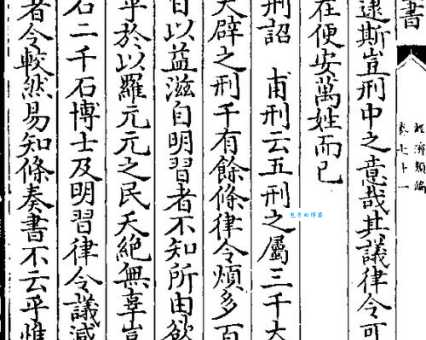 書
經濟類編
卷七十一
逮斯豈刑中之意哉其議律令可
在便安萬姓而已
刑詔 甫刑云五刑之屬三千大
大辟之刑千有餘條律令煩多百
日以益滋自明習者不知所由欲
乎於以羅元元之民夭絕無辜豈
石二千石博士及明習律令議減
者令較然易知條奏書不云乎惟